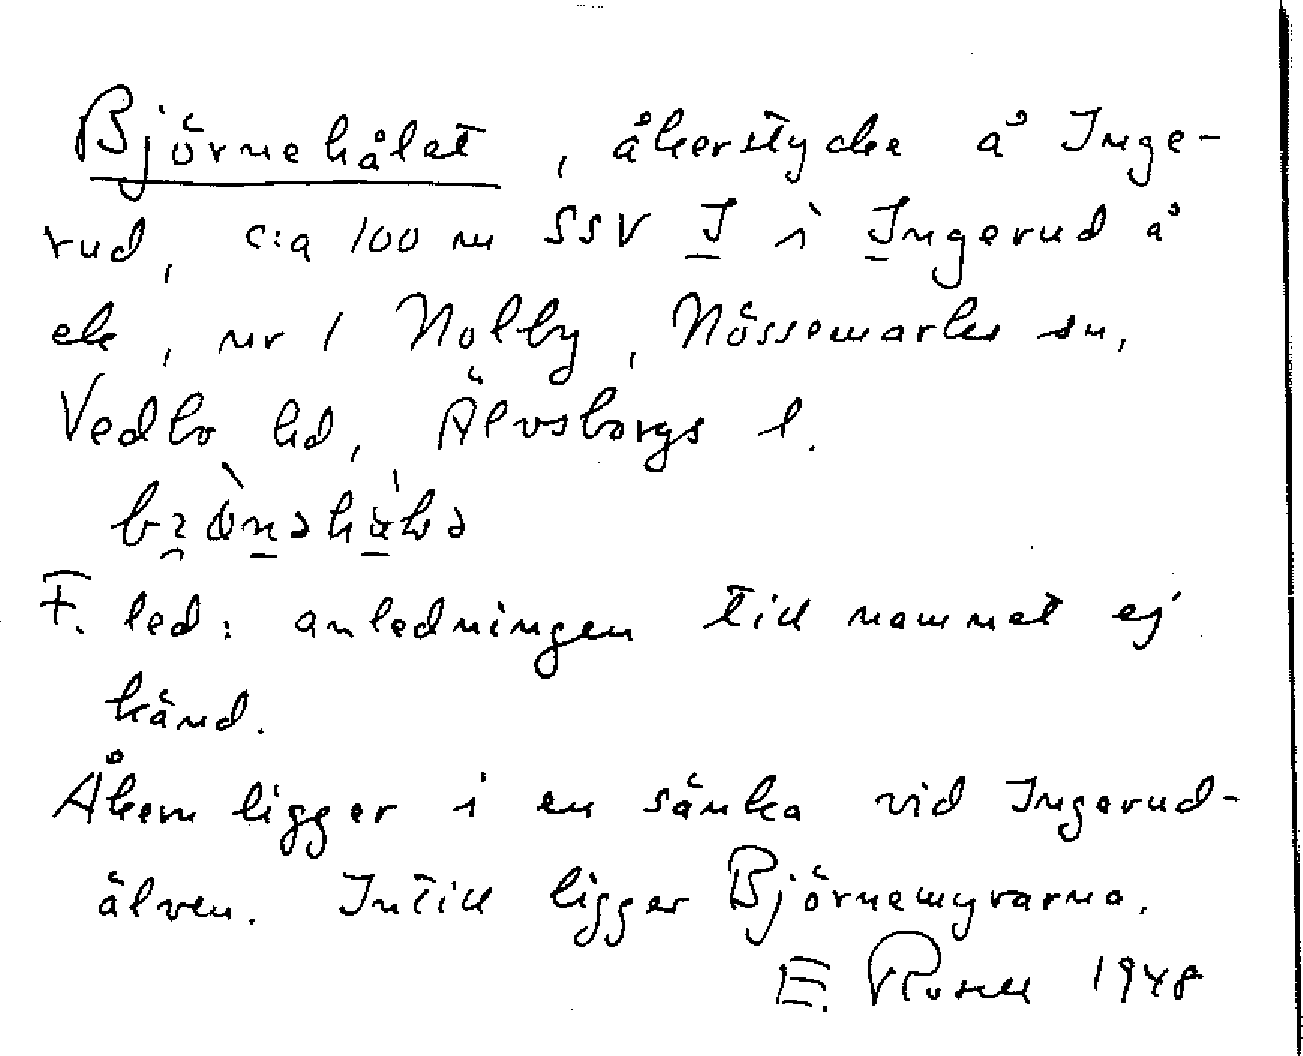 Björnehålet, åkerstycke å Inge-
rud, c:a 100 m SSV I i Ingerud å
ek, nr 1 Nolby, Nössemarks sn,
Vedbo hd, Älvsborgs l.
F. led: anledningen till namnet ej
känd.
Åkern ligger i en sänka vid Ingerud-
älven. Intill ligger Björnemyrarna.
E. Rosell 1948